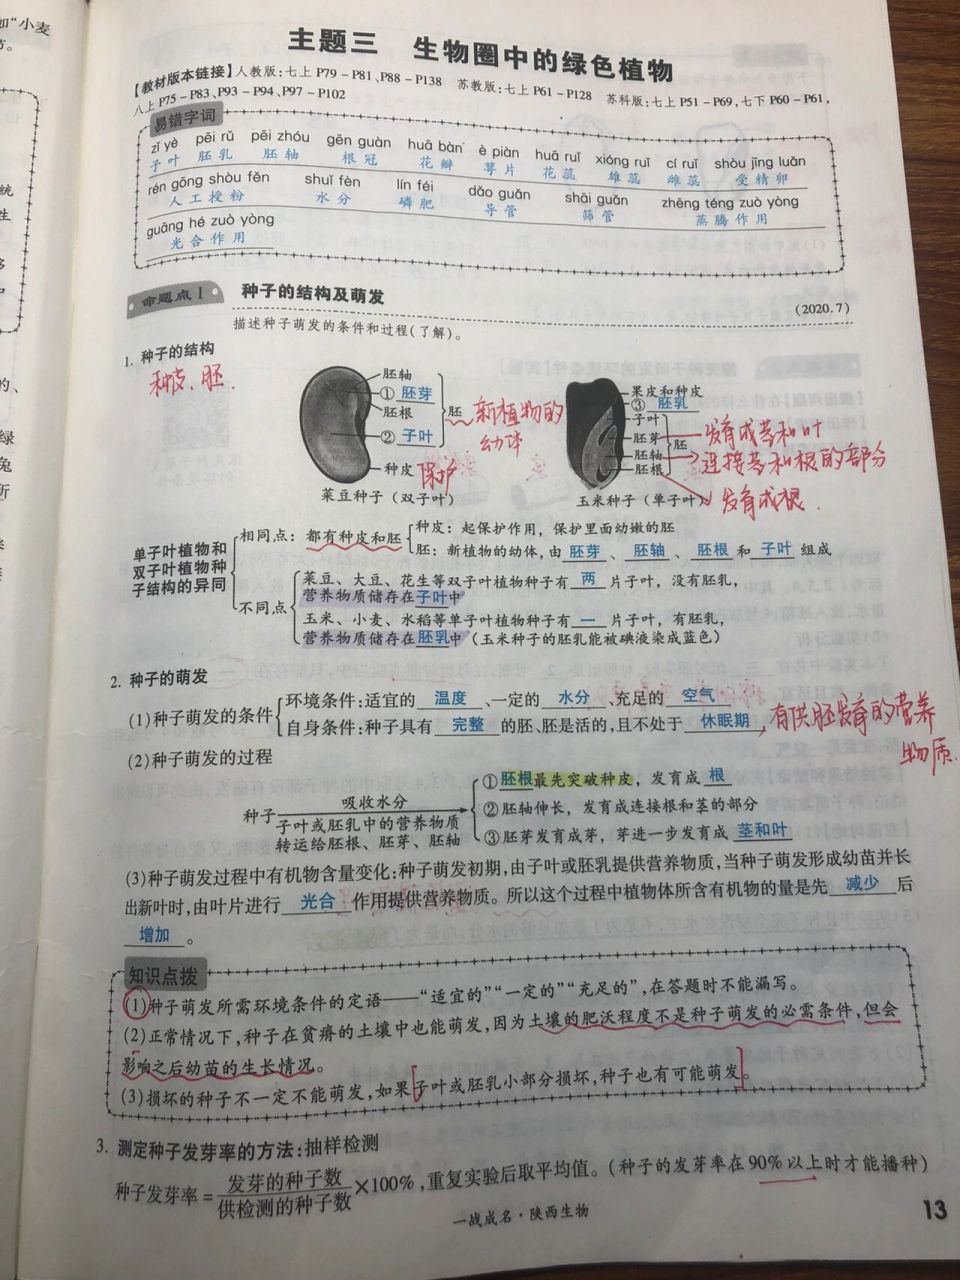 如“小麦
主题三 生物圈中的绿色植物
【教材版本链接】人教版:七上 P79－P81、P88－P138 苏教版:七上 P61－P128 苏科版:七上 P51－P69,七下 P60－P61,
八上 P75－P83、P93－P94、P97－P102
易错字词
zǐ yè pēi rǔ pēi zhóu gēn guàn huā bàn è piàn huā ruǐ xióng ruǐ cí ruǐ shòu jīng luǎn
子叶 胚乳 胚轴 根冠 花瓣 萼片 花蕊 雄蕊 雌蕊 受精卵
rén gōng shòu fěn shuǐ fèn lín féi dǎo guǎn shāi guǎn zhēng téng zuò yòng
人工授粉 水分 磷肥 导管 筛管 蒸腾作用
guāng hé zuò yòng
光合作用
命题点1 种子的结构及萌发
(2020.7)
描述种子萌发的条件和过程(了解)。
1. 种子的结构
种皮、胚.
胚轴
①胚芽
胚根
②子叶
胚
种皮
新植物的
幼体
保护
菜豆种子(双子叶)
果皮和种皮
③胚乳
子叶
胚芽
胚轴
胚根
胚
发育成茎和叶
连接茎和根的部分
发育成根.
玉米种子(单子叶)
单子叶植物和
双子叶植物种
子结构的异同
相同点:都有种皮和胚
种皮:起保护作用,保护里面幼嫩的胚
胚:新植物的幼体,由 胚芽 、 胚轴 、 胚根 和 子叶 组成
不同点
菜豆、大豆、花生等双子叶植物种子有 两 片子叶,没有胚乳,
营养物质储存在子叶中
玉米、小麦、水稻等单子叶植物种子有 一 片子叶,有胚乳,
营养物质储存在胚乳中(玉米种子的胚乳能被碘液染成蓝色)
2. 种子的萌发
(1)种子萌发的条件
环境条件:适宜的 温度 、一定的 水分 、充足的 空气
自身条件:种子具有 完整 的胚、胚是活的,且不处于 休眠期 ,有供胚发育的营养
物质.
(2)种子萌发的过程
种子
吸收水分
子叶或胚乳中的营养物质
转运给胚根、胚芽、胚轴
①胚根最先突破种皮,发育成 根
②胚轴伸长,发育成连接根和茎的部分
③胚芽发育成芽,芽进一步发育成 茎和叶
(3)种子萌发过程中有机物含量变化:种子萌发初期,由子叶或胚乳提供营养物质,当种子萌发形成幼苗并长
出新叶时,由叶片进行 光合 作用提供营养物质。所以这个过程中植物体所含有机物的量是先 减少 后
增加 。
知识点拨
(1)种子萌发所需环境条件的定语——“适宜的”“一定的”“充足的”,在答题时不能漏写。
(2)正常情况下,种子在贫瘠的土壤中也能萌发,因为土壤的肥沃程度不是种子萌发的必需条件,但会
影响之后幼苗的生长情况。
(3)损坏的种子不一定不能萌发,如果子叶或胚乳小部分损坏,种子也有可能萌发。
3. 测定种子发芽率的方法:抽样检测
种子发芽率=发芽的种子数/供检测的种子数×100%,重复实验后取平均值。(种子的发芽率在90%以上时才能播种)
一战成名·陕西生物
13